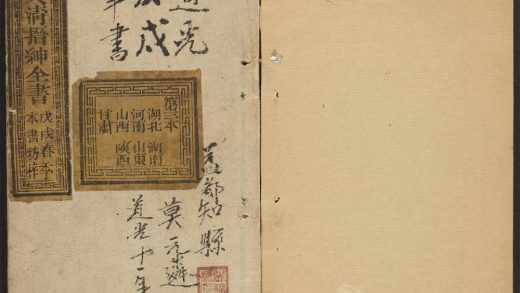 道光
戊戌
年書
清搢紳全書
戊戌春季
本書坊梓
第三本
湖北 湖南
河南 山東
山西 陝西
甘肅
益都知縣
莫
道光十一年